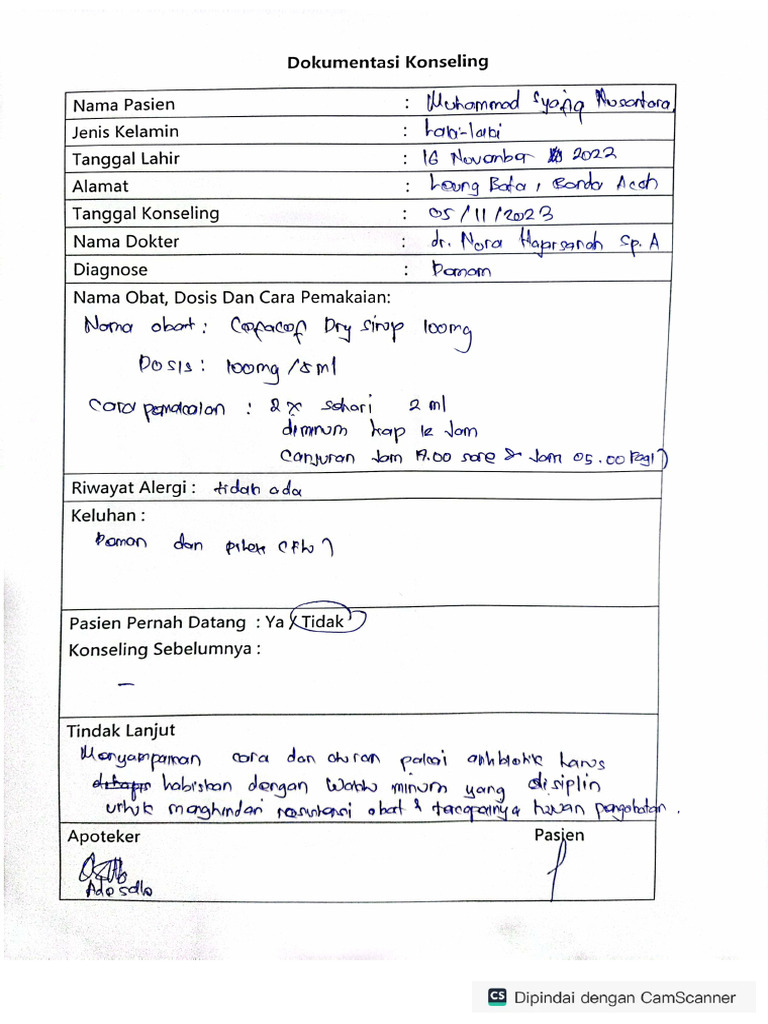 Dokumentasi Konseling
Nama Pasien : Muhammad Syafiq Nusantara
Jenis Kelamin : Laki-laki
Tanggal Lahir : 16 November 2022
Alamat : Leung Bata, Banda Aceh
Tanggal Konseling : 05/11/2023
Nama Dokter : dr. Nora Sp. A
Diagnose : Demam
Nama Obat, Dosis Dan Cara Pemakaian:
Nama obat : Dry sirup 100mg
Dosis : 100mg /5ml
Cara pemakaian : 2 x sehari 2 ml
diminum tiap 12 Jam
(anjuran Jam 17.00 sore & Jam 05.00 Pagi)
Riwayat Alergi : tidak ada
Keluhan :
Demam dan pilek (Flu)
Pasien Pernah Datang : Ya / Tidak
Konseling Sebelumnya :
–
Tindak Lanjut
Menyampaikan cara dan aturan pakai antibiotik harus
habiskan dengan waktu minum yang disiplin
untuk menghindari resistensi obat & tercapainya tujuan pengobatan.
Apoteker Pasien
CS Dipindai dengan CamScanner